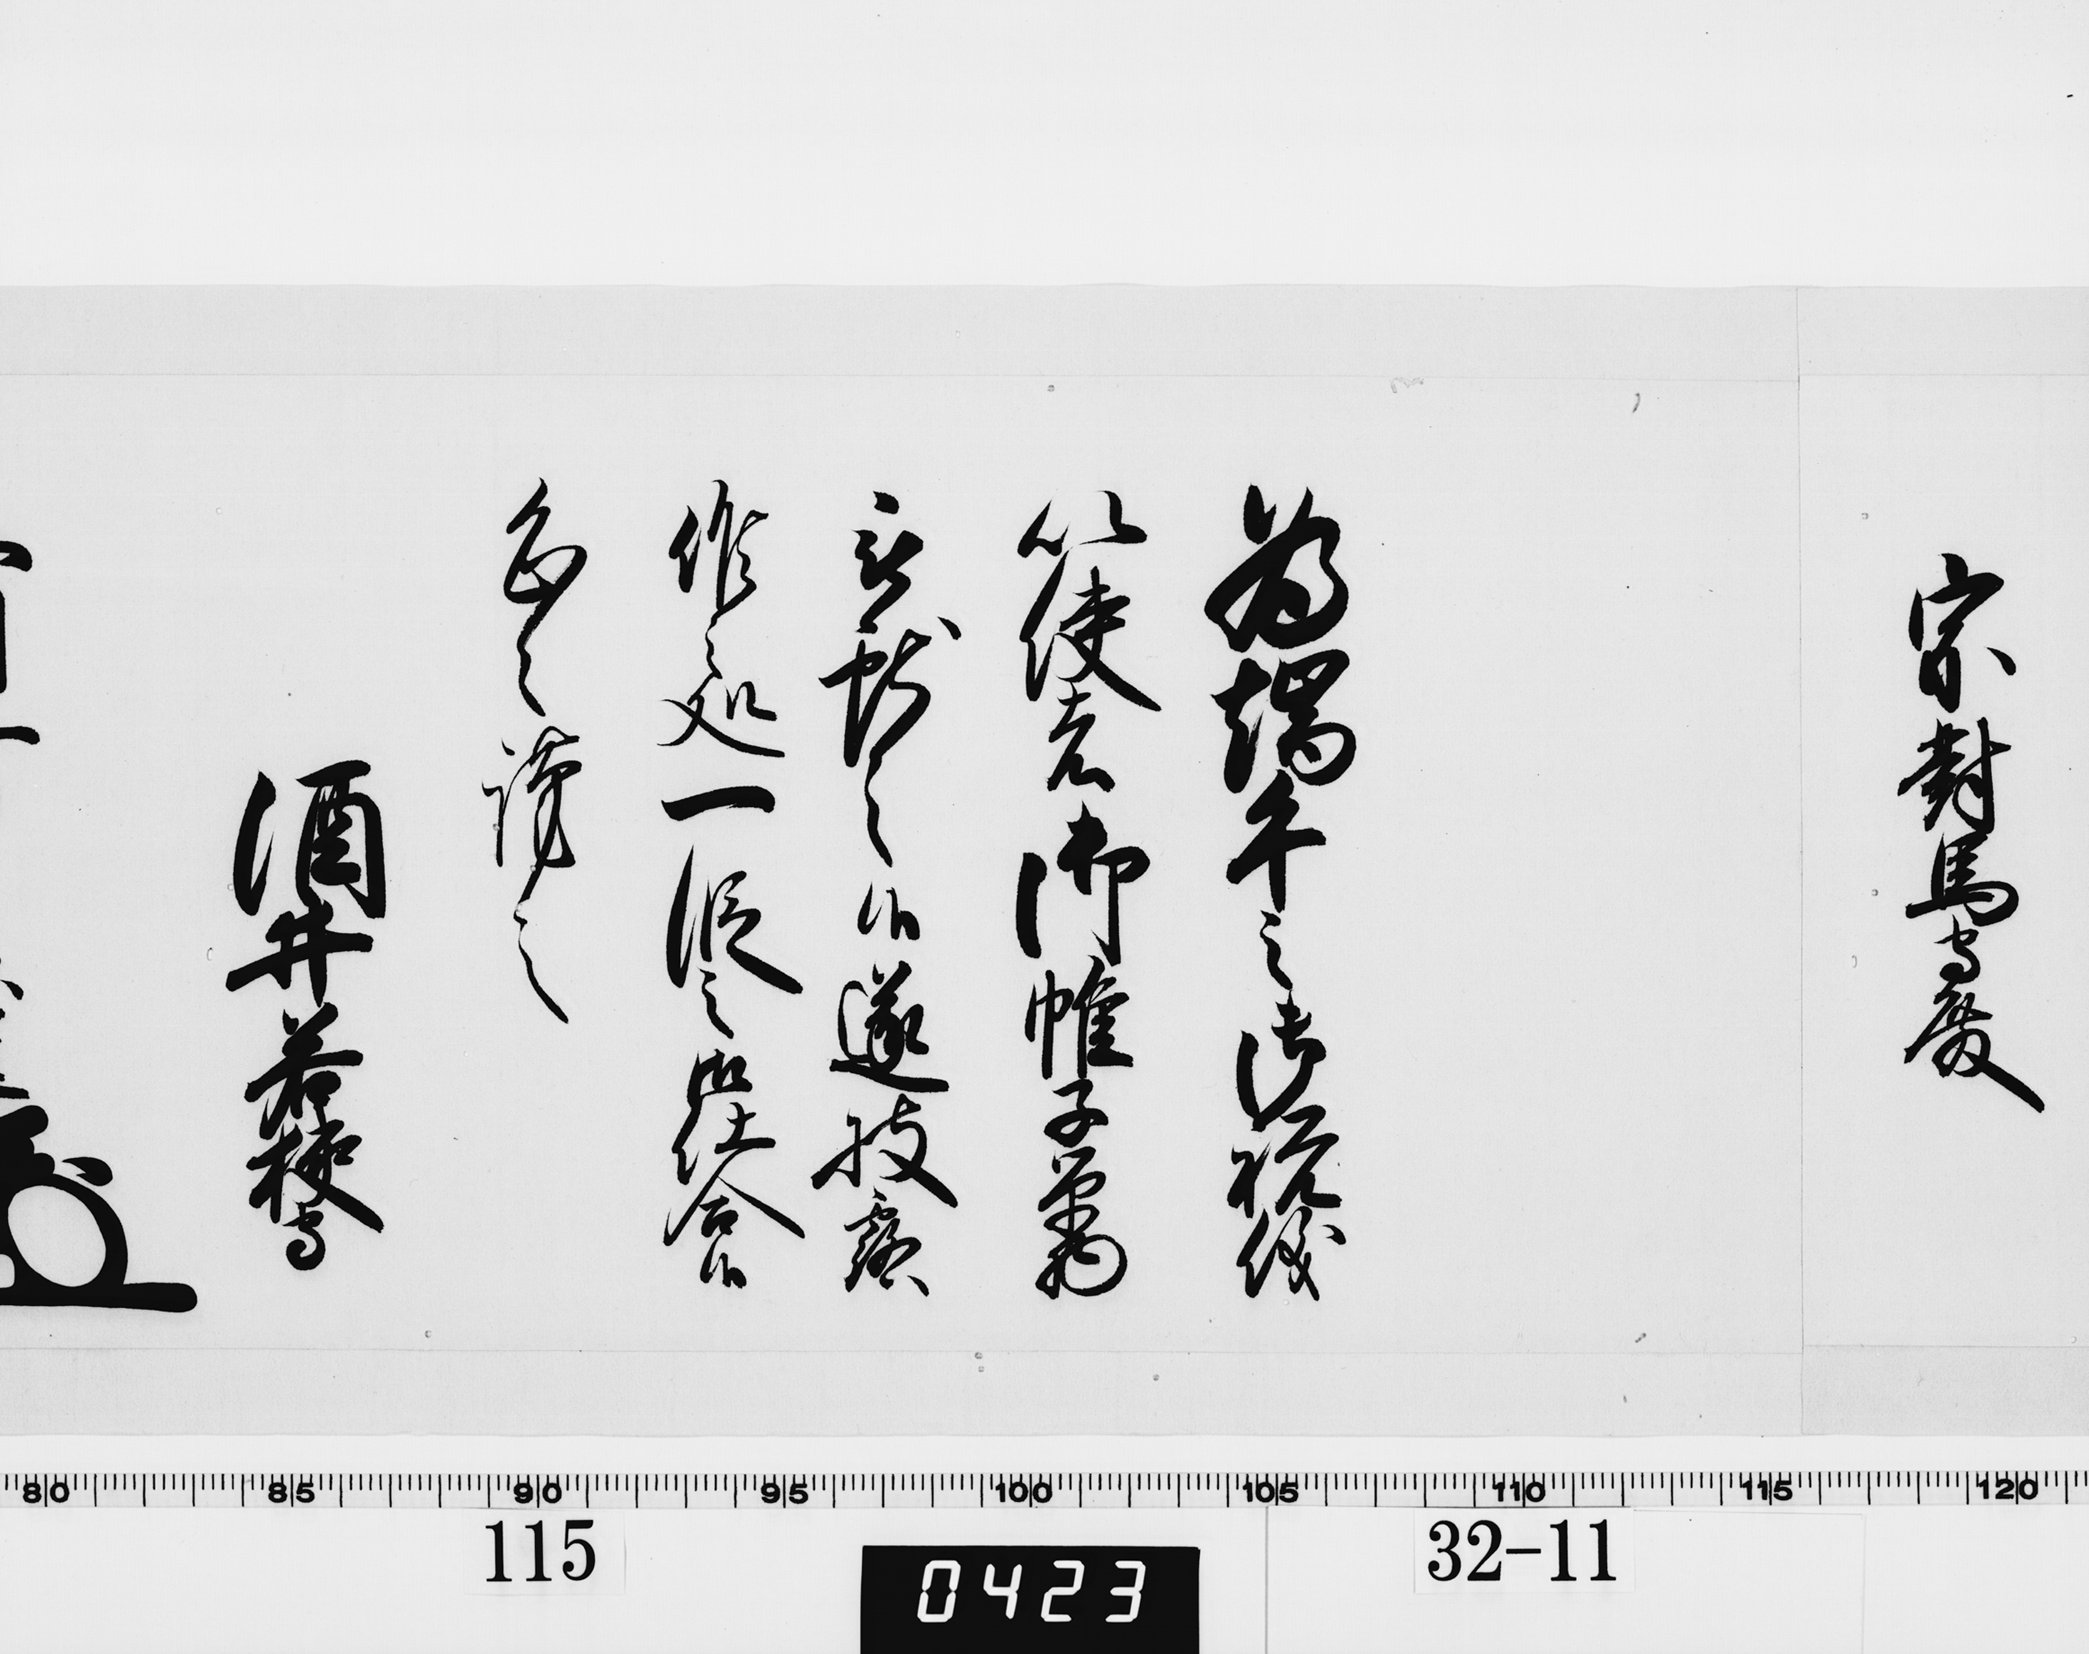 宗對馬守殿
為端午之御祝儀
以使者御帷子単物
被献之候遂披露
候之処一段之御仕合候
恐々謹言
酒井若狭守
80 85 90 95 100 105 110 115 120
115 0423 32-11